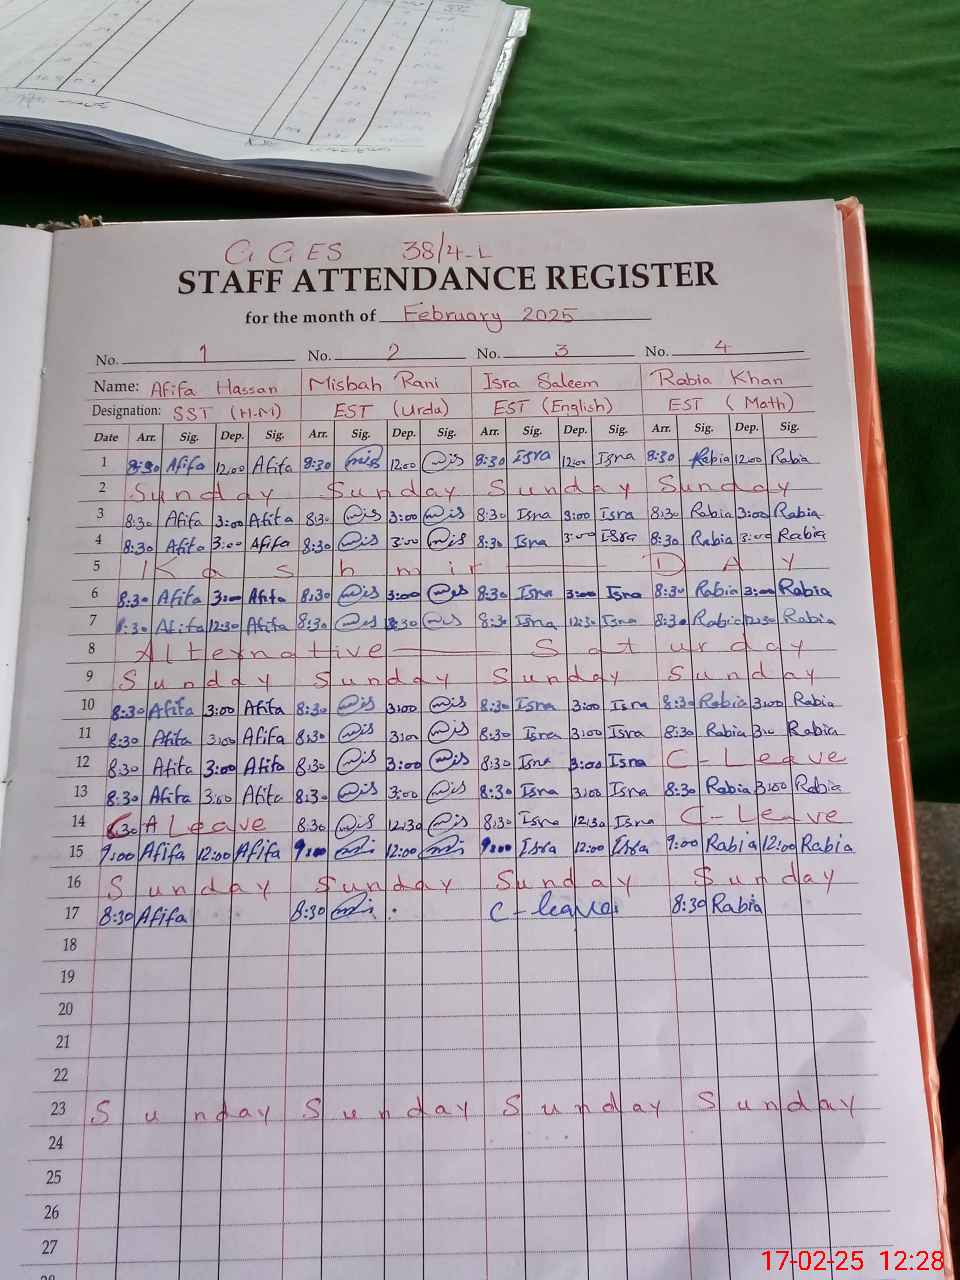 G G ES 38/4-L
STAFF ATTENDANCE REGISTER
for the month of February 2025
No. 1 No. 2 No. 3 No. 4
Name: Afifa Hassan Misbah Rani Isra Saleem Rabia Khan
Designation: SST (H-M) EST (Urdu) EST (English) EST (Math)
Date Arr. Sig. Dep. Sig. Arr. Sig. Dep. Sig. Arr. Sig. Dep. Sig. Arr. Sig. Dep. Sig.
1 8:30 Afifa 12:00 Afifa 8:30 mis 12:00 mis 8:30 Isra 12:00 Isra 8:30 Rabia 12:00 Rabia
2 Sunday Sunday Sunday Sunday
3 8:30 Afifa 3:00 Afifa 8:30 mis 3:00 mis 8:30 Isra 3:00 Isra 8:30 Rabia 3:00 Rabia
4 8:30 Afifa 3:00 Afifa 8:30 mis 3:00 mis 8:30 Isra 3:00 Isra 8:30 Rabia 3:00 Rabia
5 Kashmir DAY
6 8:30 Afifa 3:00 Afifa 8:30 mis 3:00 mis 8:30 Isra 3:00 Isra 8:30 Rabia 3:00 Rabia
7 8:30 Afifa 12:30 Afifa 8:30 mis 12:30 mis 8:30 Isra 12:30 Isra 8:30 Rabia 12:30 Rabia
8 Alternative Saturday
9 Sunday Sunday Sunday Sunday
10 8:30 Afifa 3:00 Afifa 8:30 mis 3:00 mis 8:30 Isra 3:00 Isra 8:30 Rabia 3:00 Rabia
11 8:30 Afifa 3:00 Afifa 8:30 mis 3:00 mis 8:30 Isra 3:00 Isra 8:30 Rabia 3:00 Rabia
12 8:30 Afifa 3:00 Afifa 8:30 mis 3:00 mis 8:30 Isra 3:00 Isra C-Leave
13 8:30 Afifa 3:00 Afifa 8:30 mis 3:00 mis 8:30 Isra 3:00 Isra 8:30 Rabia 3:00 Rabia
14 Leave 8:30 mis 12:30 mis 8:30 Isra 12:30 Isra C-Leave
15 9:00 Afifa 12:00 Afifa 9:00 12:00 9:00 Isra 12:00 Isra 9:00 Rabia 12:00 Rabia
16 Sunday Sunday Sunday Sunday
17 8:30 Afifa 8:30 C-leave 8:30 Rabia
18
19
20
21
22
23 Sunday Sunday Sunday Sunday
24
25
26
27
28
17-02-25 12:28